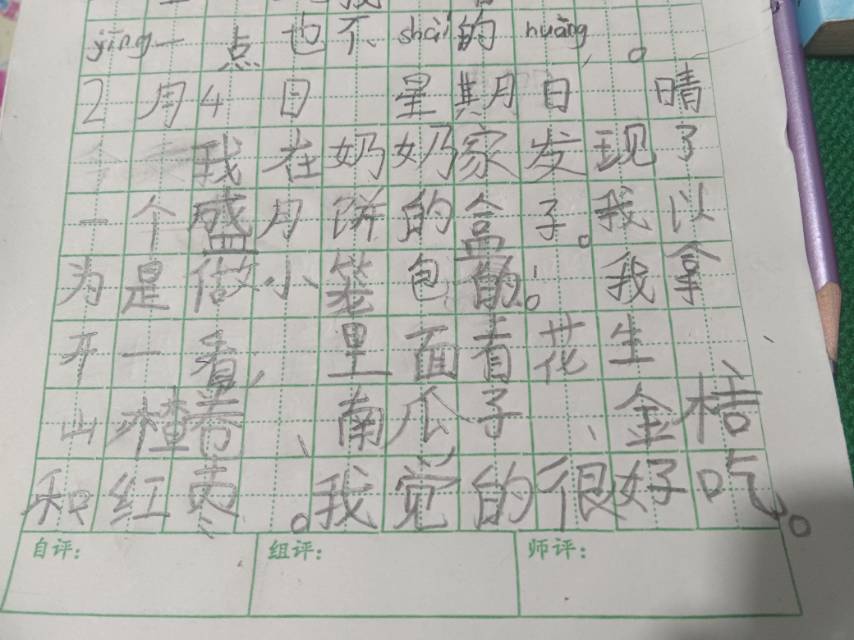 jīng一点也不shài的huāng。
2月4日 星期日 晴
我在奶奶家发现了
一个盛月饼的盒子。我以
为是做小笼包的。我拿
开一看,里面有花生、
山楂卷、南瓜子、金桔
和红枣。我觉的很好吃。
自评: 组评: 师评: